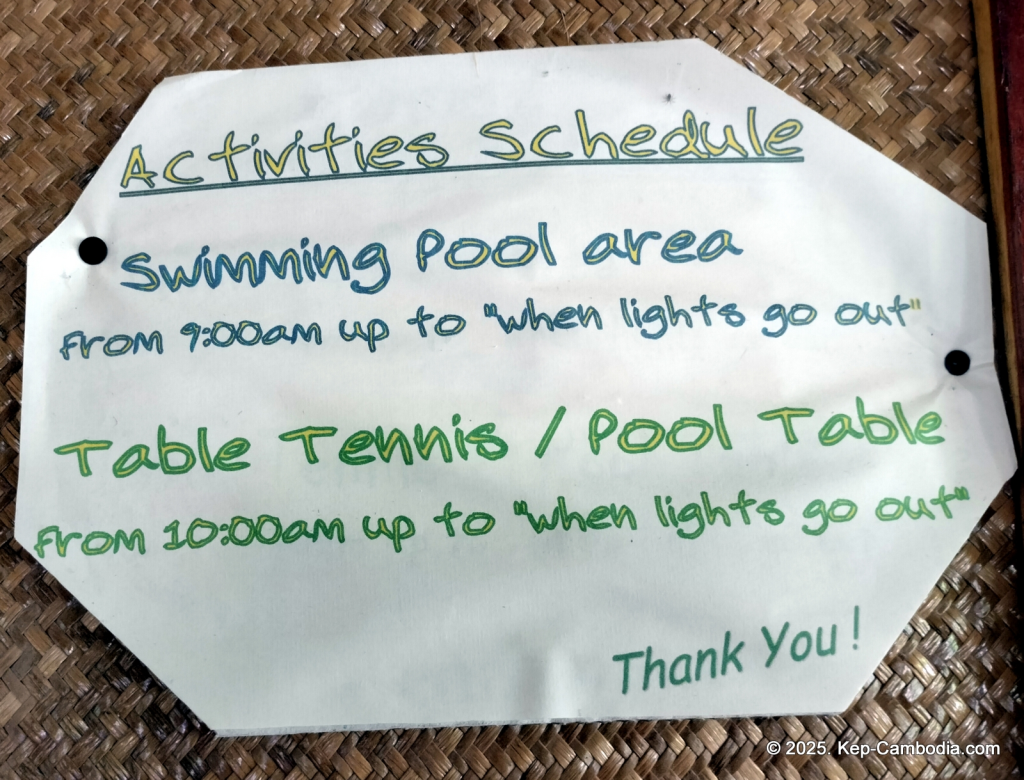 Activities Schedule
Swimming Pool area
from 9:00am up to "when lights go out"
Table Tennis / Pool Table
from 10:00am up to "when lights go out"
Thank You !
© 2025. Kep-Cambodia.com